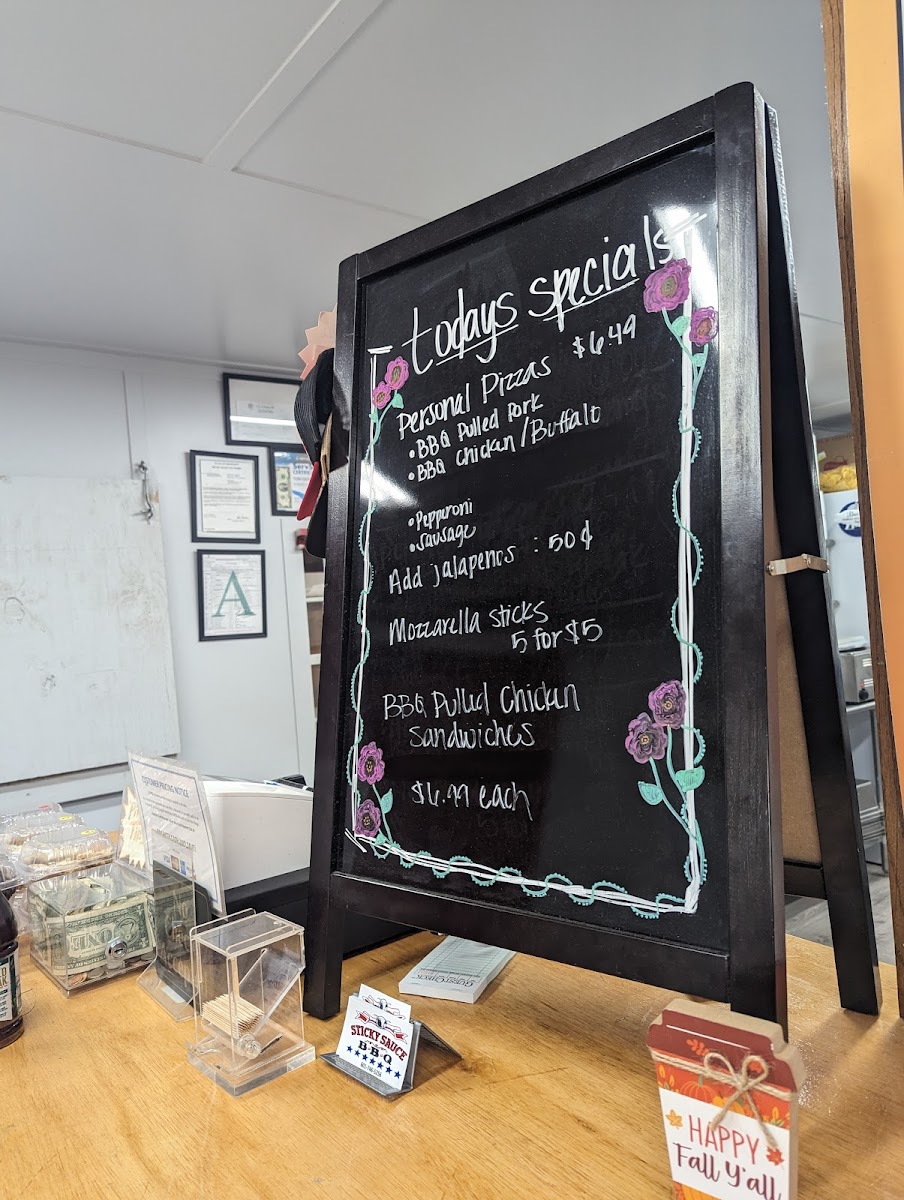 todays specials
Personal Pizzas $6.49
• BBQ Pulled Pork
• BBQ Chicken/Buffalo
• Pepperoni
• Sausage
Add jalapenos : 50¢
Mozzarella sticks
5 for $5
BBQ Pulled Chicken
Sandwiches
$6.99 each
A
CUSTOMER PRICING NOTICE
ONE
STICKY SAUCE
B·B·Q
GUEST CHECKS
HAPPY
Fall Y'all